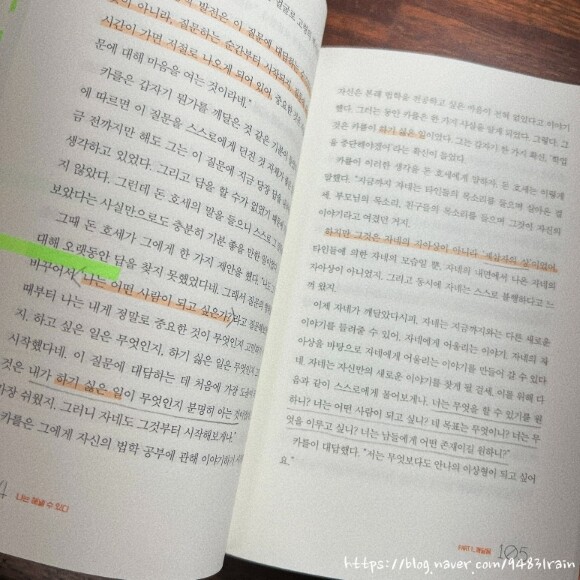 발전은 이 질문에 대답하는
것이 아니라, 질문하는 순간부터 시작되지.
시간이 가면 저절로 나오게 되어 있어. 중요한 것은
문에 대해 마음을 여는 것이라네."
카를은 갑자기 뭔가를 깨달은 것 같은 기분이
에 따르면 이 질문을 스스로에게 던진 것 자체가
금 전까지만 해도 그는 이 질문에 지금 당장 답을
생각하고 있었다. 그리고 답을 할 수가 없었기 때문에
지 않았다. 그런데 돈 호세의 말을 들으니 스스로 그
보았다는 사실만으로도 충분히 기분 좋을 만한 일이었다.
그때 돈 호세가 그에게 한 가지 제안을 했다.
대해 오랫동안 답을 찾지 못했었다네. 그래서 질문의
바꾸어서 '나는 어떤 사람이 되고 싶은가'라고
때부터 나는 내게 정말로 중요한 것이 무엇인지
지, 하고 싶은 일은 무엇인지, 하기 싫은 일은 무엇인지
시작했다네. 이 질문에 대답하는 데 처음에 가장
것은 내가 하기 싫은 일이 무엇인지 분명히 아는 것이
가장 쉬웠지. 그러니 자네도 그것부터 시작해보게나."
카를은 그에게 자신의 법학 공부에 관해 이야기하기 시
나는 해낼 수 있다
자신은 본래 법학을 전공하고 싶은 마음이 전혀 없었다고 이야기
했다. 그러는 동안 카를은 한 가지 사실을 알게 되었다. 그렇다. 그
것은 카를이 하기 싫은 일이었다. 그는 갑자기 한 가지 확신, '학업
을 중단해야겠어'라는 확신이 들었다.
카를이 이러한 생각을 돈 호세에게 말하자, 돈 호세는 이렇게
말했다. "지금까지 자네는 타인들의 목소리를 들으며 살아온 걸
세. 부모님의 목소리, 친구들의 목소리를 들으며 그것이 자신의
이야기라고 여겼던 거지.
하지만 그것은 자네의 자아상이 아니라 '세상과의 상'이었어.
타인들에 의한 자네의 모습일 뿐, 자네의 내면에서 나온 자네의
자아상이 아니었지. 그리고 동시에 자네는 스스로 불행하다고 느
껴 왔지.
이제 자네가 깨달았다시피, 자네는 지금까지와는 다른 새로운
이야기를 들려줄 수 있어. 자네에게 어울리는 이야기, 자네의 자
아상을 바탕으로 자네에게 어울리는 이야기를 만들어 갈 수 있다
네. 자네는 자신만의 새로운 이야기를 찾게 될 걸세. 이를 위해 다
음과 같이 스스로에게 물어보게나. 너는 무엇을 할 수 있기를 원
하니? 너는 어떤 사람이 되고 싶니? 네 목표는 무엇이니? 너는 무
엇을 이루고 싶니? 너는 남들에게 어떤 존재이길 원하니?"
카를이 대답했다. "저는 무엇보다도 안나의 이상형이 되고 싶어
요."
PART 1. 깨달음 105
https://blog.naver.com/94831rain